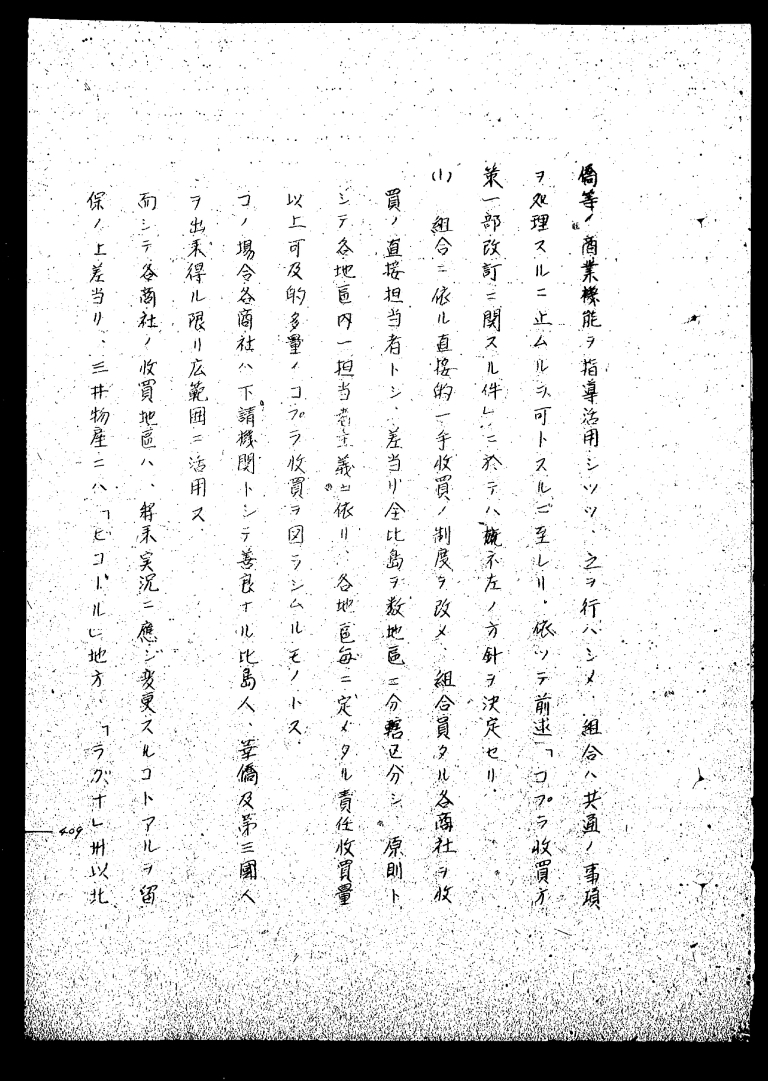 僑等ノ商業機能ヲ指導活用シツツ、之ヲ行ハシメ、組合ハ共通ノ事項
ヲ処理スルニ止ムルヲ可トスルニ至レリ。依ツテ前述「コプラ收買方
策一部改訂ニ関スル件」ニ於テハ概ネ左ノ方針ヲ決定セリ、
(1) 組合ニ依ル直接的一手收買ノ制度ヲ改メ、組合員タル各商社ヲ收
買ノ直接担当者トシ、差当リ全比島ヲ数地區ニ分轄区分シ、原則ト
シテ各地區内一担当者主義ニ依リ、各地區毎ニ定メタル責任收買量
以上可及的多量ノコプラ收買ヲ図ラシムルモノトス、
コノ場合各商社ハ下請機関トシテ善良ナル比島人、華僑及第三國人
ヲ出来得ル限リ広範囲ニ活用ス、
而シテ各商社ノ收買地區ハ、将来実況ニ應ジ変更スルコトアルヲ留
保ノ上差当リ、三井物産ニハ、「ビコール」地方、「ラグナ」州以北
409